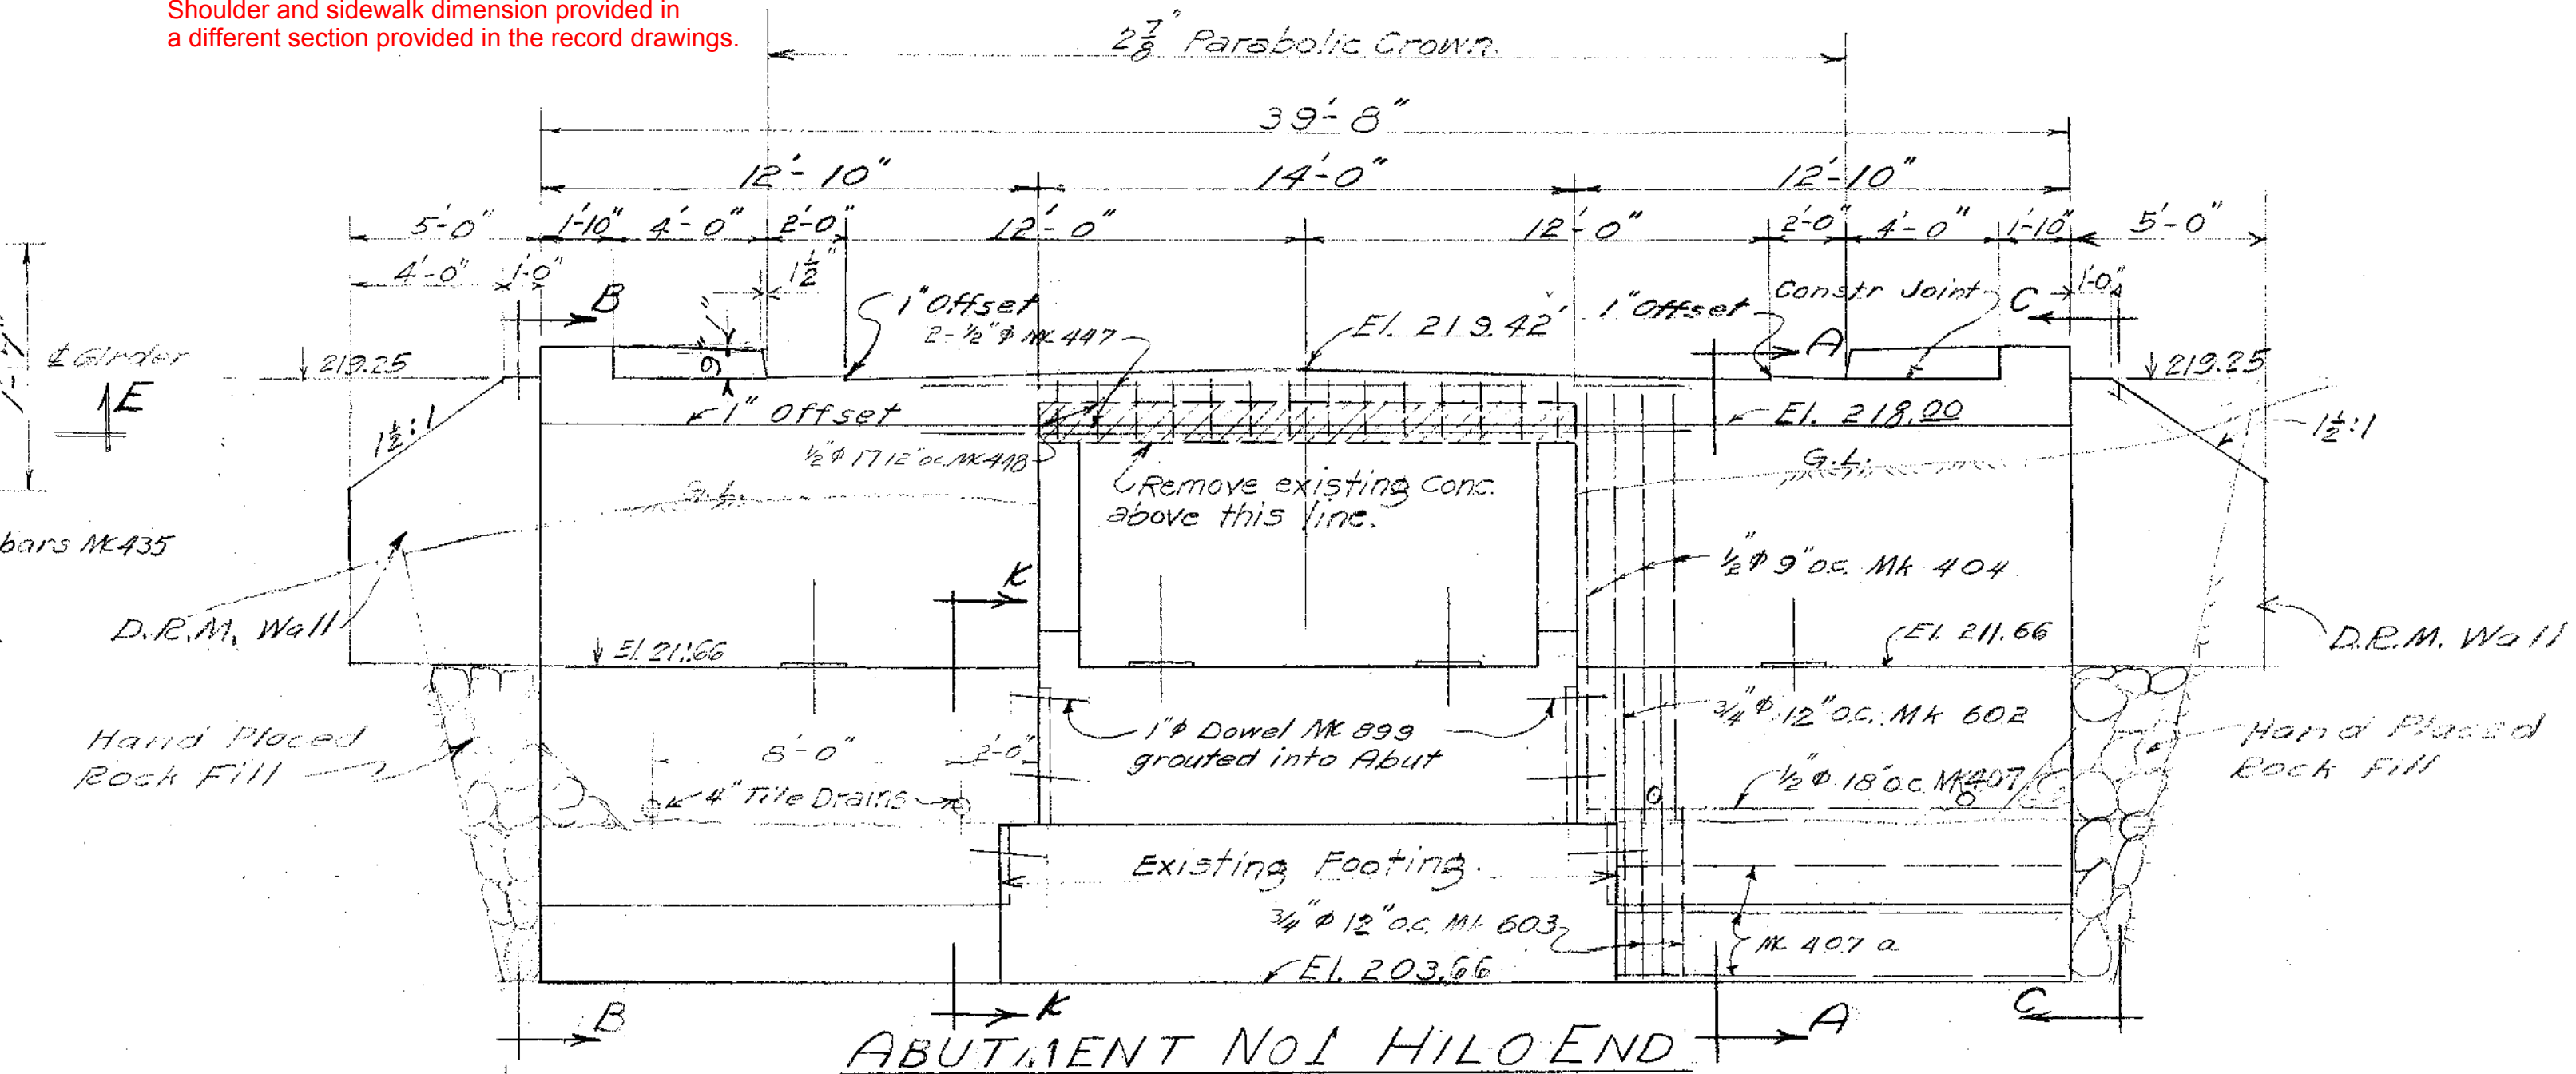 Shoulder and sidewalk dimension provided in
a different section provided in the record drawings.
2 7/8" Parabolic Crown.
39'-8"
12'-10" 14'-0" 12'-10"
5'-0" 1'-10" 4'-0" 2'-0" 12'-0" 12'-0" 2'-0" 4'-0" 1'-10" 5'-0"
4'-0" 1'-0" 1 1/2" 1'-0"
B 1" Offset El. 219.42' 1" Offset Constr Joint C
2-1/2"φ MK 447 A
℄ Girder 219.25 9" 1" 219.25
E
1 1/2:1 1" Offset El. 218.00 1 1/2:1
1/2"φ 17 12"oc. MK 448 G.L.
G.L. Remove existing Conc.
above this line.
bars MK 435 1/2"φ 9"o.c. Mk 404
K
D.R.M. Wall El. 211.66 D.R.M. Wall
El. 21.66
3/4"φ 12"o.c. Mk 602
Hand Placed 8'-0" 2'-0" 1"φ Dowel MK 899 Hand Placed
Rock Fill grouted into Abut Rock Fill
4" Tile Drains 1/2"φ 18"o.c. MK 407
Existing Footing.
3/4"φ 12"o.c. Mk 603
MK 407 a
El. 203.66
B K A C
ABUTMENT NO1 HILO END